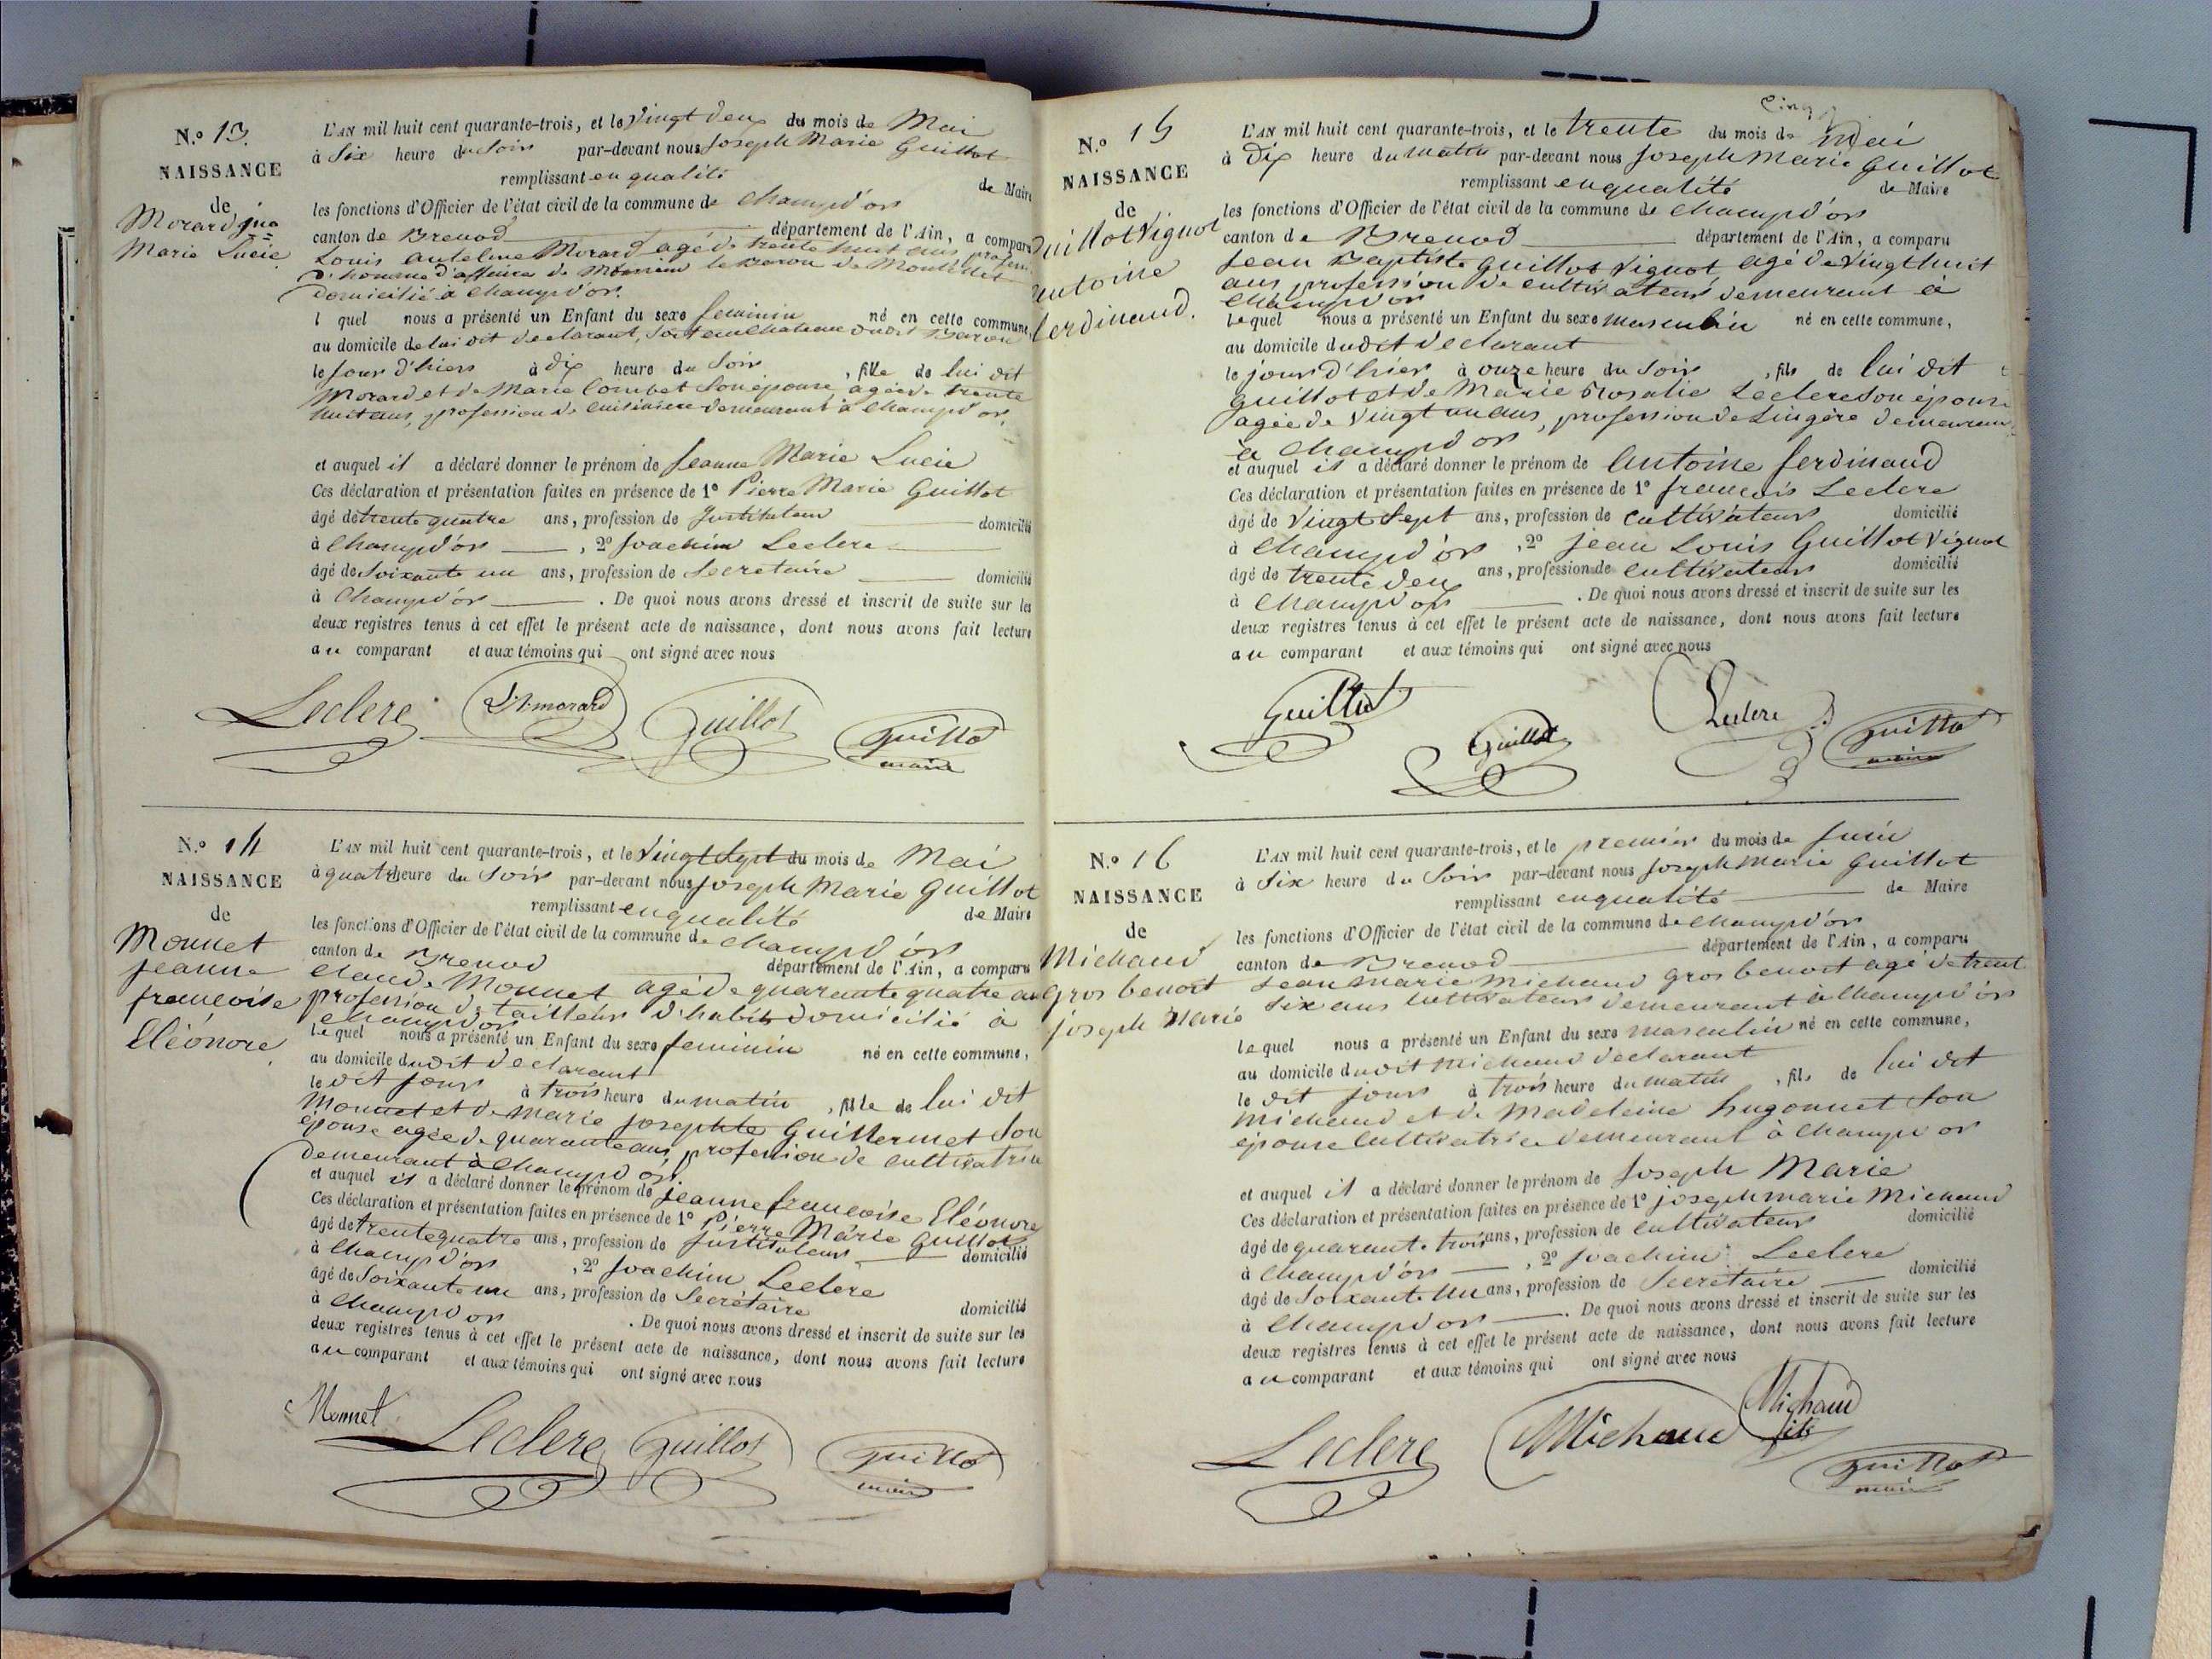 N.º 13.
NAISSANCE
de
Morard jne
Marie Lucie
L'AN mil huit cent quarante-trois, et le Vingt deux du mois de Mai
à Six heure du Soir par-devant nous Joseph Marie Guillot
remplissant en qualité de Maire
les fonctions d'Officier de l'état civil de la commune de Champd'or
canton de Brenod département de l'Ain, a comparu
Louis Anteline Morard agé de trente huit ans profession
d'homme d'affaire de Monsieur le Baron de
domicilié à Champd'or.
l quel nous a présenté un Enfant du sexe feminin né en cette commune,
au domicile de lui dit declarant, Baron
le Jour d'hier à dix heure du Soir, fille de lui dit
Morard et de Marie Combet Son épouse, agée de trente
huit ans, profession de Cuisiniere demeurant à Champd'or,
et auquel il a déclaré donner le prénom de Jeanne Marie Lucie
Ces déclaration et présentation faites en présence de 1º Pierre Marie Guillot
âgé de trente quatre ans, profession de Instituteur domicilié
à Champd'or, 2º Joachim Leclere
âgé de Soixante un ans, profession de Secretaire domicilié
à Champd'or. De quoi nous avons dressé et inscrit de suite sur les
deux registres tenus à cet effet le présent acte de naissance, dont nous avons fait lecture
au comparant et aux témoins qui ont signé avec nous
Leclere L. A. morard Guillot Guillot
maire
N.º 14
NAISSANCE
de
Monnet
Jeanne
françoise
Eléonore
L'AN mil huit cent quarante-trois, et le Vingt Sept du mois de Mai
à quatre heure du Soir par-devant nous Joseph Marie Guillot
remplissant en qualité de Maire
les fonctions d'Officier de l'état civil de la commune de Champd'or
canton de Brenod département de l'Ain, a comparu
Claude Monnet agé de quarante quatre ans
profession de tailleur d'habits domicilié à
Champd'or
lequel nous a présenté un Enfant du sexe feminin né en cette commune,
au domicile dudit declarant
le dit jour à trois heure du matin, fille de lui dit
Monnet et de Marie Josephte Guillermet Son
épouse agée de quarante ans, profession de cultivatrice
demeurant à Champd'or
et auquel il a déclaré donner le prénom de jeanne francoise Eléonore
Ces déclaration et présentation faites en présence de 1º Pierre Marie Guillot
âgé de trente quatre ans, profession de Instituteur domicilié
à Champd'or, 2º Joachim Leclere
âgé de Soixante un ans, profession de Secrétaire domicilié
à Champd'or. De quoi nous avons dressé et inscrit de suite sur les
deux registres tenus à cet effet le présent acte de naissance, dont nous avons fait lecture
au comparant et aux témoins qui ont signé avec nous
Monnet Leclere Guillot Guillot
maire
N.º 15
NAISSANCE
de
Guillot Vignot
Antoine
ferdinand.
L'AN mil huit cent quarante-trois, et le trente du mois de Mai
à Dix heure du matin par-devant nous Joseph Marie Guillot
remplissant en qualité de Maire
les fonctions d'Officier de l'état civil de la commune de Champd'or
canton de Brenod département de l'Ain, a comparu
Jean Baptiste Guillot Vignot agé de Vingt huit
ans, profession de cultivateur demeurant à
Champd'or
lequel nous a présenté un Enfant du sexe masculin né en cette commune,
au domicile dudit declarant
le jour d'hier à onze heure du Soir, fils de lui dit
Guillot et de Marie Rosalie Leclere Son épouse
agée de Vingt un ans, profession de Lingère demeurant
à Champd'or
et auquel il a déclaré donner le prénom de Antoine ferdinand
Ces déclaration et présentation faites en présence de 1º francois Leclere
âgé de Vingt Sept ans, profession de cultivateur domicilié
à Champd'or, 2º Jean Louis Guillot Vignot
âgé de trente deux ans, profession de cultivateur domicilié
à Champd'or. De quoi nous avons dressé et inscrit de suite sur les
deux registres tenus à cet effet le présent acte de naissance, dont nous avons fait lecture
au comparant et aux témoins qui ont signé avec nous
Guillot Guillot Leclere Guillot
maire
N.º 16
NAISSANCE
de
Michaud
Gros benoit
joseph Marie
L'AN mil huit cent quarante-trois, et le premier du mois de Juin
à Six heure du Soir par-devant nous Joseph Marie Guillot
remplissant en qualité de Maire
les fonctions d'Officier de l'état civil de la commune de Champd'or
canton de Brenod département de l'Ain, a comparu
Jean marie Michaud Gros benoit agé de trente
Six ans Cultivateur demeurant à Champd'or
lequel nous a présenté un Enfant du sexe masculin né en cette commune,
au domicile dudit Michaud declarant
le dit jour à trois heure du matin, fils de lui dit
Michaud et de Madeleine hugonnet Son
épouse Cultivatrice demeurant à Champd'or
et auquel il a déclaré donner le prénom de Joseph Marie
Ces déclaration et présentation faites en présence de 1º joseph marie Michaud
âgé de quarante trois ans, profession de cultivateur domicilié
à Champd'or, 2º Joachim Leclere
âgé de Soixante un ans, profession de Secrétaire domicilié
à Champd'or. De quoi nous avons dressé et inscrit de suite sur les
deux registres tenus à cet effet le présent acte de naissance, dont nous avons fait lecture
au comparant et aux témoins qui ont signé avec nous
Leclere Michaud Michaud
fils
Guillot
maire